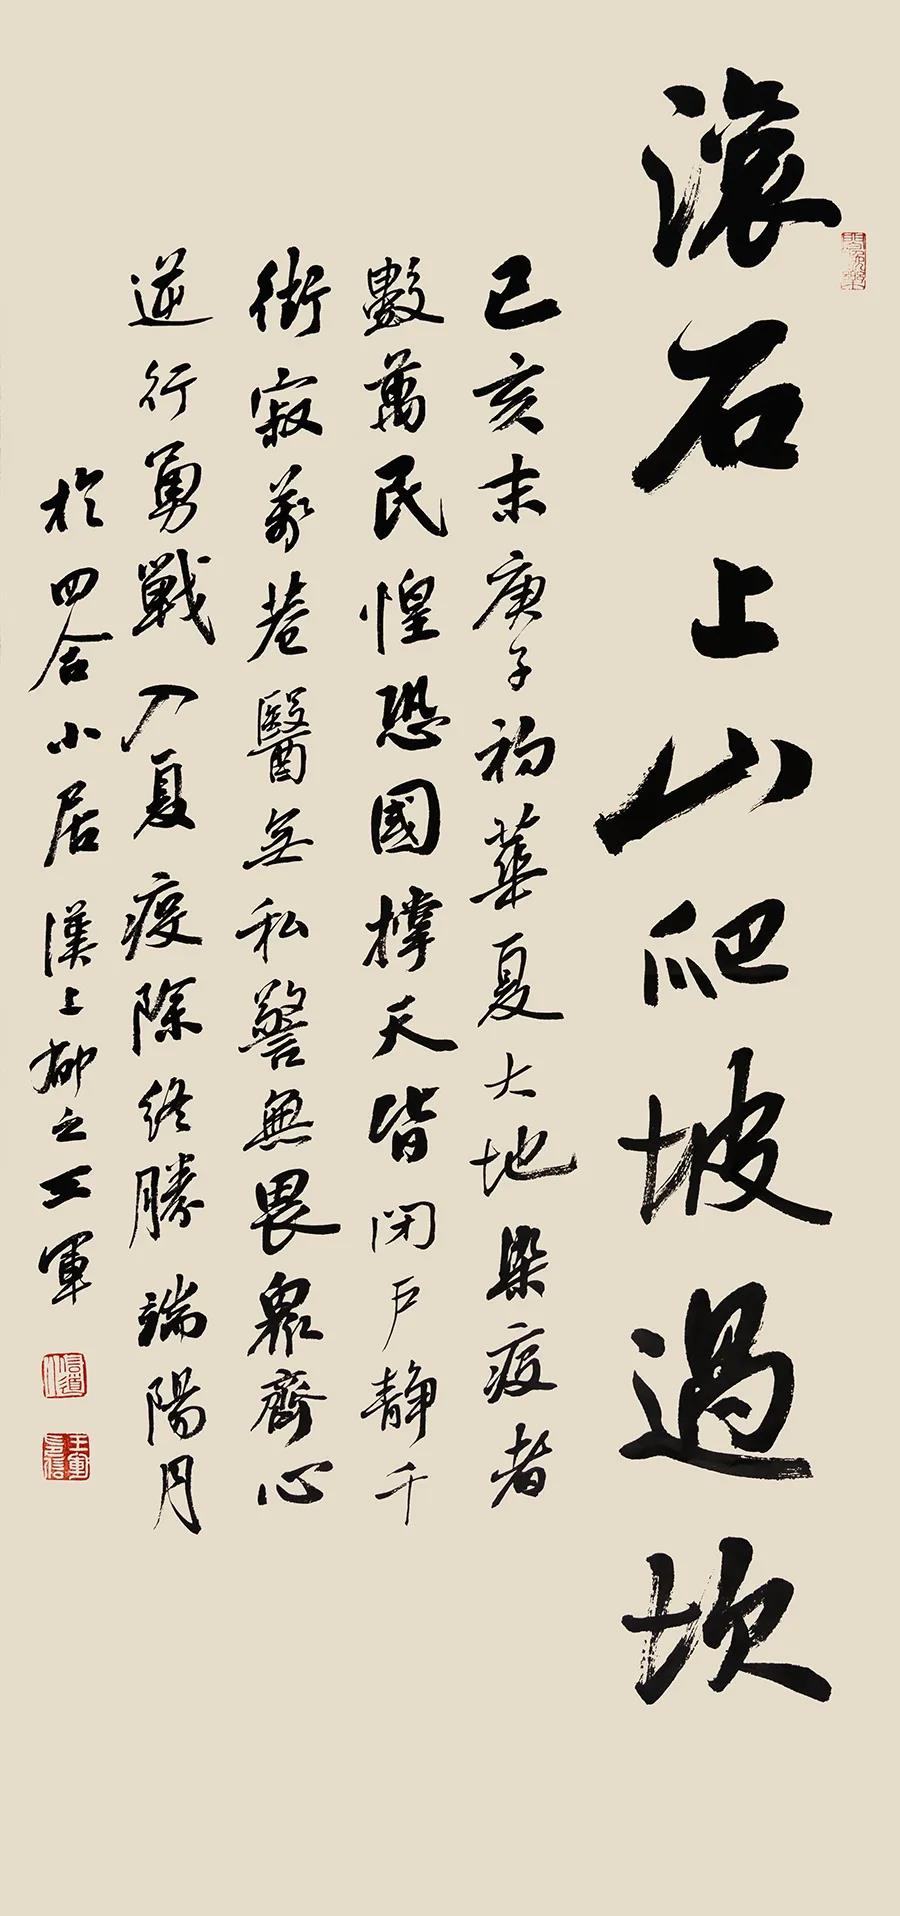 滾石上山爬坡過坎
己亥末庚子初華夏大地染疫者
數萬民惶恐國撑天皆闭户静千
街寂萬巷醫无私警無畏衆齊心
逆行勇戰入夏疫除终勝端陽月
於四合小居漢上柳之王軍